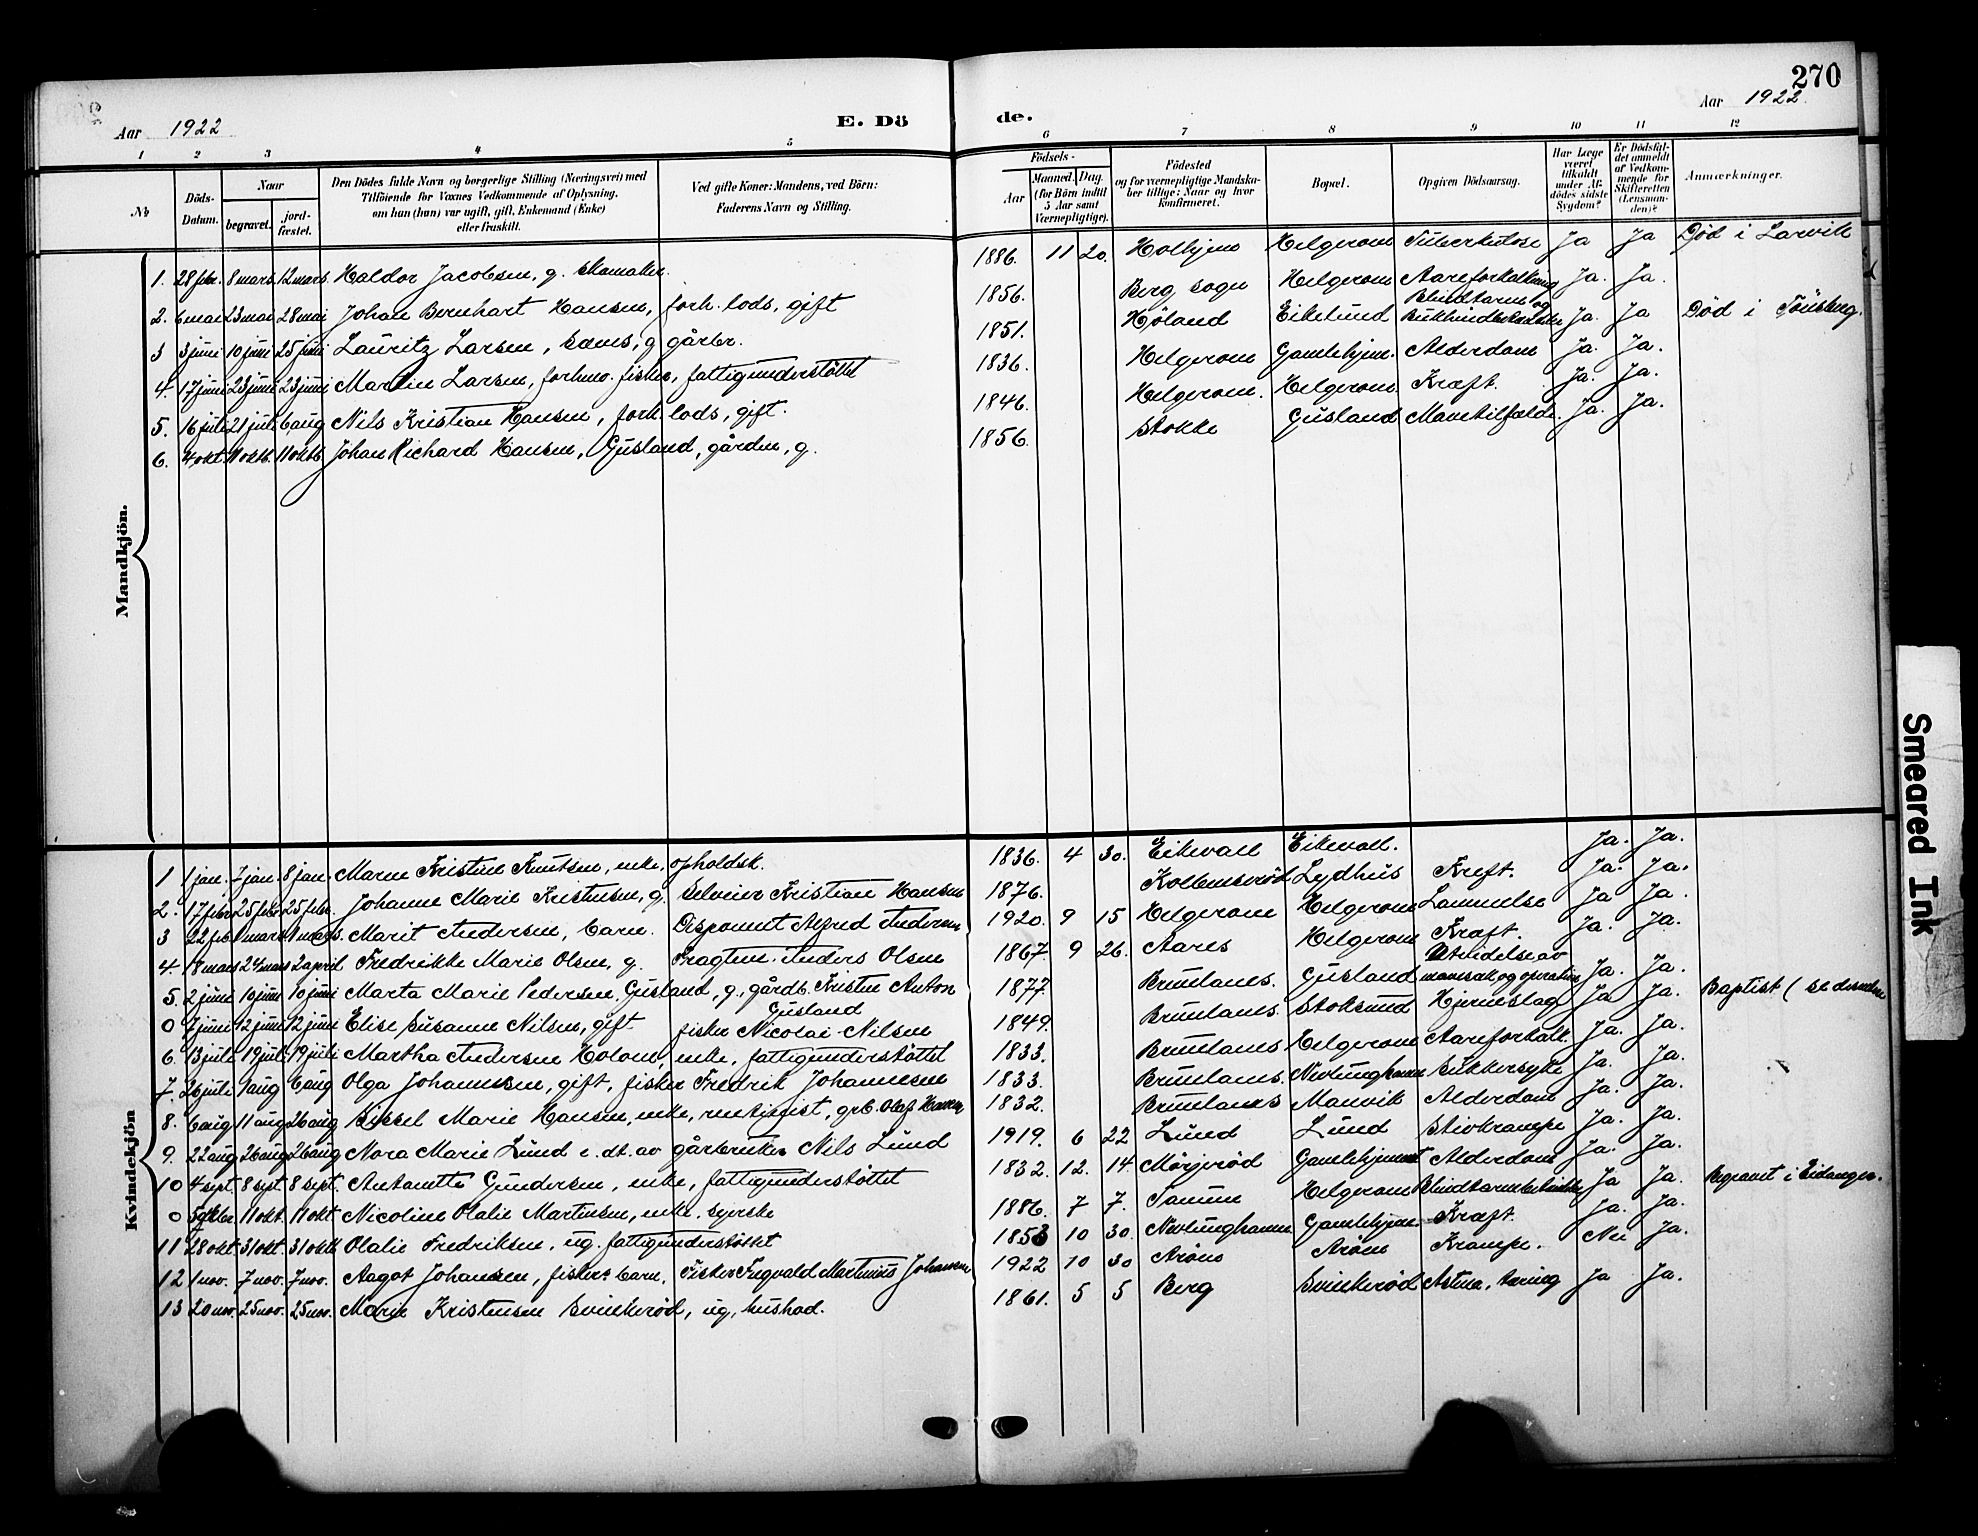 270
Aar 1922 E. Dö de. Aar 1922.
1 2 3 4 5 6 7 8 9 10 11 12
№
Döds-Datum.
Naar
begravet.
jord-fæstet.
Den Dödes fulde Navn og borgerlige Stilling (Næringsvei) med
Tilföiende for Voxnes Vedkommende af Oplysning,
om han (hun) var ugift, gift, Enkemand (Enke)
eller fraskilt.
Ved gifte Koner: Mandens, ved Börn:
Faderens Navn og Stilling.
Födsels-
Aar
Maaned. Dag.
(for Börn indtil
5 Aar samt
Værnepligtige).
Födested
og for værnepligtige Mandska-
ber tillige: Naar og hvor
Konfirmeret.
Bopæl.
Opgiven Dödsaarsag.
Har Læge
været
tilkaldt
under Af-
dödes sidste
Sygdom?
Er Dödsfal-
det anmeldt
af Vedkom-
mende for
Skifteretten
(Lensman-
den)?
Anmærkninger.
Mandkjön.
1. 28 febr. 8 mars. 12 mars. Haldor Jacobsen, g. skomaker. 1886. 11 20. Holhjem Helgerom Tuberkulose Ja Ja Död i Larvik
2. 6 mai 23 mai 28 mai Johan Bernhart Hansen, forh. lods, gift 1856. Berg sogn Helgerom Aareforkalkning Ja. Ja.
3 3 juni 10 juni 25 juni Lauritz Larsen, g gårbr. 1851. Höland Eikelund Blindtarm og Ja. Ja Död i Tönsberg.
4. 17 juni 23 juni 23 juni Martin Larsen, forhv. fisker, fattigunderstöttet 1836. Helgerom Gamlehjem. Alderdom Ja. Ja.
5. 16 juli 21 juli 6 aug Nils Kristian Hansen, forh. lods, gift. 1846. Helgerom. Helgerom Kræft. Ja. Ja.
6. 4 okt. 11 oktb. 11 oktb. Johan Richard Hansen, Gusland, gården, g. 1856. Stokke Gusland Mavetilfælde. Ja. Ja.
Kvindekjön
1 1 jan. 7 jan. 8 jan. Maren Kristine Knutsen, enke, opholdsk. 1836. 4 30. Eikevall Eikevall. Ja. Ja.
2. 17 febr 25 febr 25 febr. Johanne Marie Kristensen, g. Selveier Kristian Hansen 1876. Kolbensrød Lydhus Kreft. Ja. Ja.
3 22 feb. 1 mars 1 mars. Marit Andersen, barn. Disponent Alfred Andersen 1920. 9 15 Helgerom Helgerom Lammelse Ja Ja.
4 18 mars 24 mars 2 april Fredrikke Marie Olsen, g. Fragtm. Anders Olsen 1867. 9 26. Aares Helgerom Kræft. Ja. Ja.
5. 2 juni 10 juni 10 juni Marta Marie Pedersen, Gusland, g, gårdb. Kristen Anton Gusland 1877. Brunlanes. Gusland Utvidelse av mavesæk og operation Ja. Ja.
0 7 juni 12 juni 12 juni Elise Susanne Nilsen, gift fisker Nicolai Nilsen 1849. Brunlanes. Stoksund Hjerneslag Ja Ja. Baptist (
6. 13 juli 19 juli 19 juli Martha Andersen Holom, enke, fattigunderstöttet 1833. Brunlanes Helgerom Aareforkalk. Ja. Ja.
7. 26 juli 1 aug 6 aug Olga Johannesen, gift, fisker Fredrik Johannesen 1833. Brunlanes. Nevlunghavn Sukkersyke Ja. Ja.
8. 6 aug 11 aug 26 aug Sissel Marie Hansen, enke, grb. Olaf Hansen 1832. Brunlanes Manvik Alderdom Ja. Ja.
9. 22 aug 26 aug 26 aug Nora Marie Lund e. dt. av gårbruker Nils Lund 1919. 6 22 Lund Lund Stivkrampe Ja. Ja.
10 4 sept. 8 sept. 8 sept. Antonette Gundersen, enke, fattigunderstöttet 1832. 12. 14. Mörjeröd Gamlehjemmet Alderdom Ja. Ja.
0 5 oktbr. 11 okt. 11 okt Nicoline Olalie Martinsen, enke. syerske 1886. 7 7. Tanum Helgerom Blindtarmbetændelse Ja Ja. Begravet i Eidanger.
11 28 okt. 31 okt. 31 oktb Olalie Fredriksen, ug. fattigunderstöttet 1853 10 30. Nevlunghavn Gamlehjem. Kræft. Ja. Ja.
12 1 nov. 7 nov. 7 nov. Aagot Johansen, fiskers barn, Fisker Ingvald Martinius Johansen 1922 10 30 Aröns Aröns Krampe. Nei Ja.
13 20 nov. 25 nov. 25 nov. Maren Kristensen Svinkeröd, ug, hushod. 1861. 5 5 Berg Svinkeröd Astma, tæring Ja Ja.
Smeared Ink